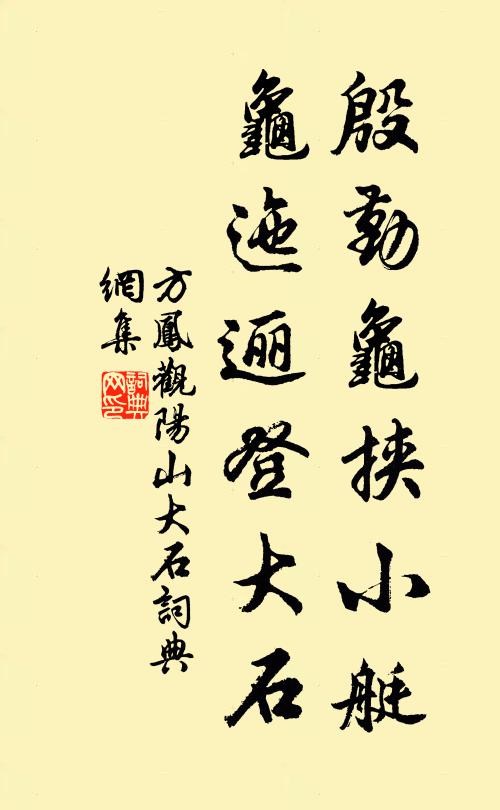 殷勤龜挾小艇
龜迤逦登大石
方鳳觀陽山大石詞典
網集
詞典
网印